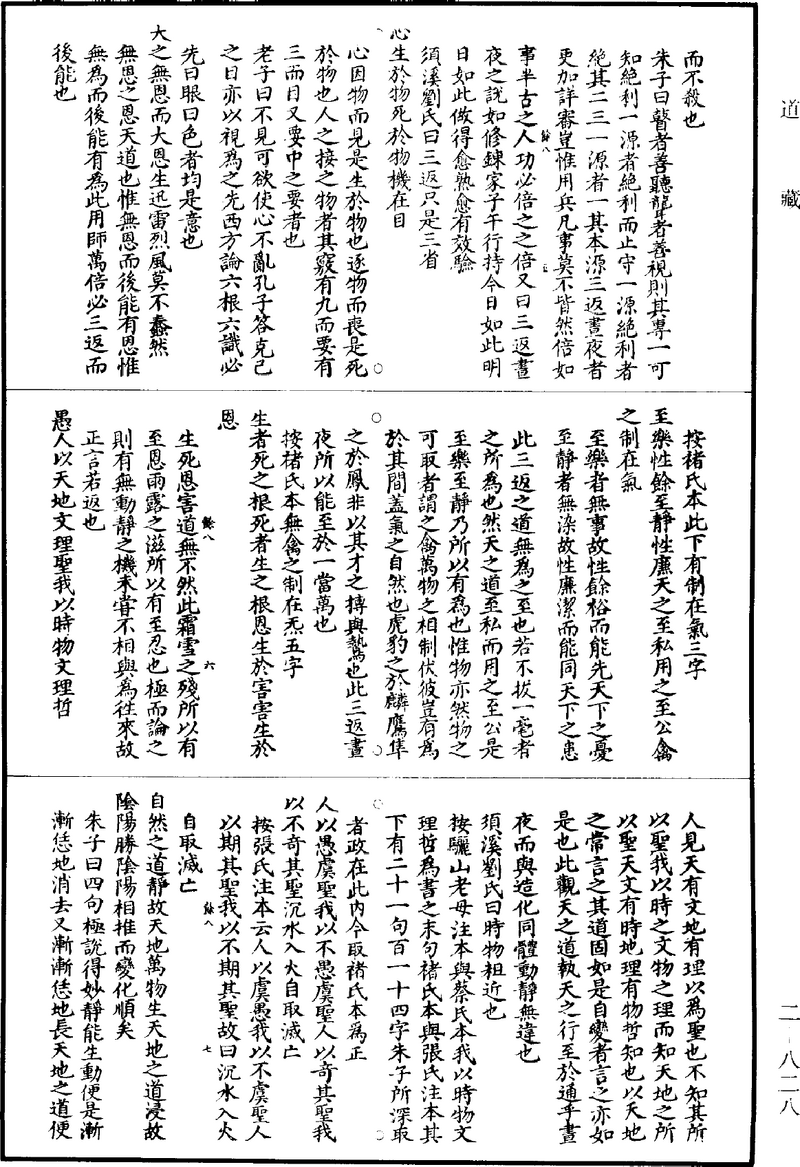 道藏
而不殺也
朱子曰瞽者善聽聾者善視則其專一可
知絶利一源者絶利而止守一源絶利者
絶其二三一源者一其本源三返晝夜者
更加詳審豈惟用兵凡事莫不皆然倍如
事半古之人功必倍之之倍又曰三返晝
夜之說如修鍊家子午行持今日如此明
日如此做得愈熟愈有效驗
須溪劉氏曰三返只是三省
心生於物死於物機在目
心因物而見是生於物也逐物而喪是死
於物也人之接之物者其竅有九而要有
三而目又要中之要者也
老子曰不見可欲使心不亂孔子答克己
之目亦以視為之先西方論六根六識必
先曰眼曰色者均是意也
大之無恩而大恩生迅雷烈風莫不蠢然
無恩之恩天道也惟無恩而後能有恩惟
無為而後能有為此用師萬倍必三返而
後能也
按褚氏本此下有制在氣三字
至樂性餘至靜性廉天之至私用之至公禽
之制在氣
至樂者無事故性餘裕而能先天下之憂
至靜者無染故性廉潔而能同天下之患
此三返之道無為之至也若不拔一毫者
之所為也然天之道至私而用之至公是
至樂至靜乃所以有為也惟物亦然物之
可取者謂之禽萬物之相制伏彼豈有為
於其間蓋氣之自然也虎豹之於麟鷹隼
之於鳳非以其才之搏與鷙也此三返晝
夜所以能至於一當萬也
按褚氏本無禽之制在炁五字
生者死之根死者生之根恩生於害害生於
恩
生死恩害道無不然此霜雪之殘所以有
至恩雨露之滋所以有至忍也極而論之
則有無動靜之機未嘗不相與為往來故
正言若返也
愚人以天地文理聖我以時物文理哲
人見天有文地有理以為聖也不知其所
以聖我以時之文物之理而知天地之所
以聖天文有時地理有物哲知也以天地
之常言之其道固如是自變者言之亦如
是也此觀天之道執天之行至於通乎晝
夜而與造化同體動靜無違也
須溪劉氏曰時物粗近也
按驪山老母注本與蔡氏本我以時物文
理哲為書之末句褚氏本與張氏注本其
下有二十一句百一十四字朱子所深取
者政在此內今取褚氏本為正
人以愚虞聖我以不愚虞聖人以奇其聖我
以不奇其聖沉水入火自取滅亡
按張氏注本云人以虞愚我以不虞聖人
以期其聖我以不期其聖故曰沉水入火
自取滅亡
自然之道靜故天地萬物生天地之道浸故
陰陽勝陰陽相推而變化順矣
朱子曰四句極說得妙靜能生動便是漸
漸恁地消去又漸漸恁地長天地之道便
餘八
五
餘八
六
餘八
七
二-八二八